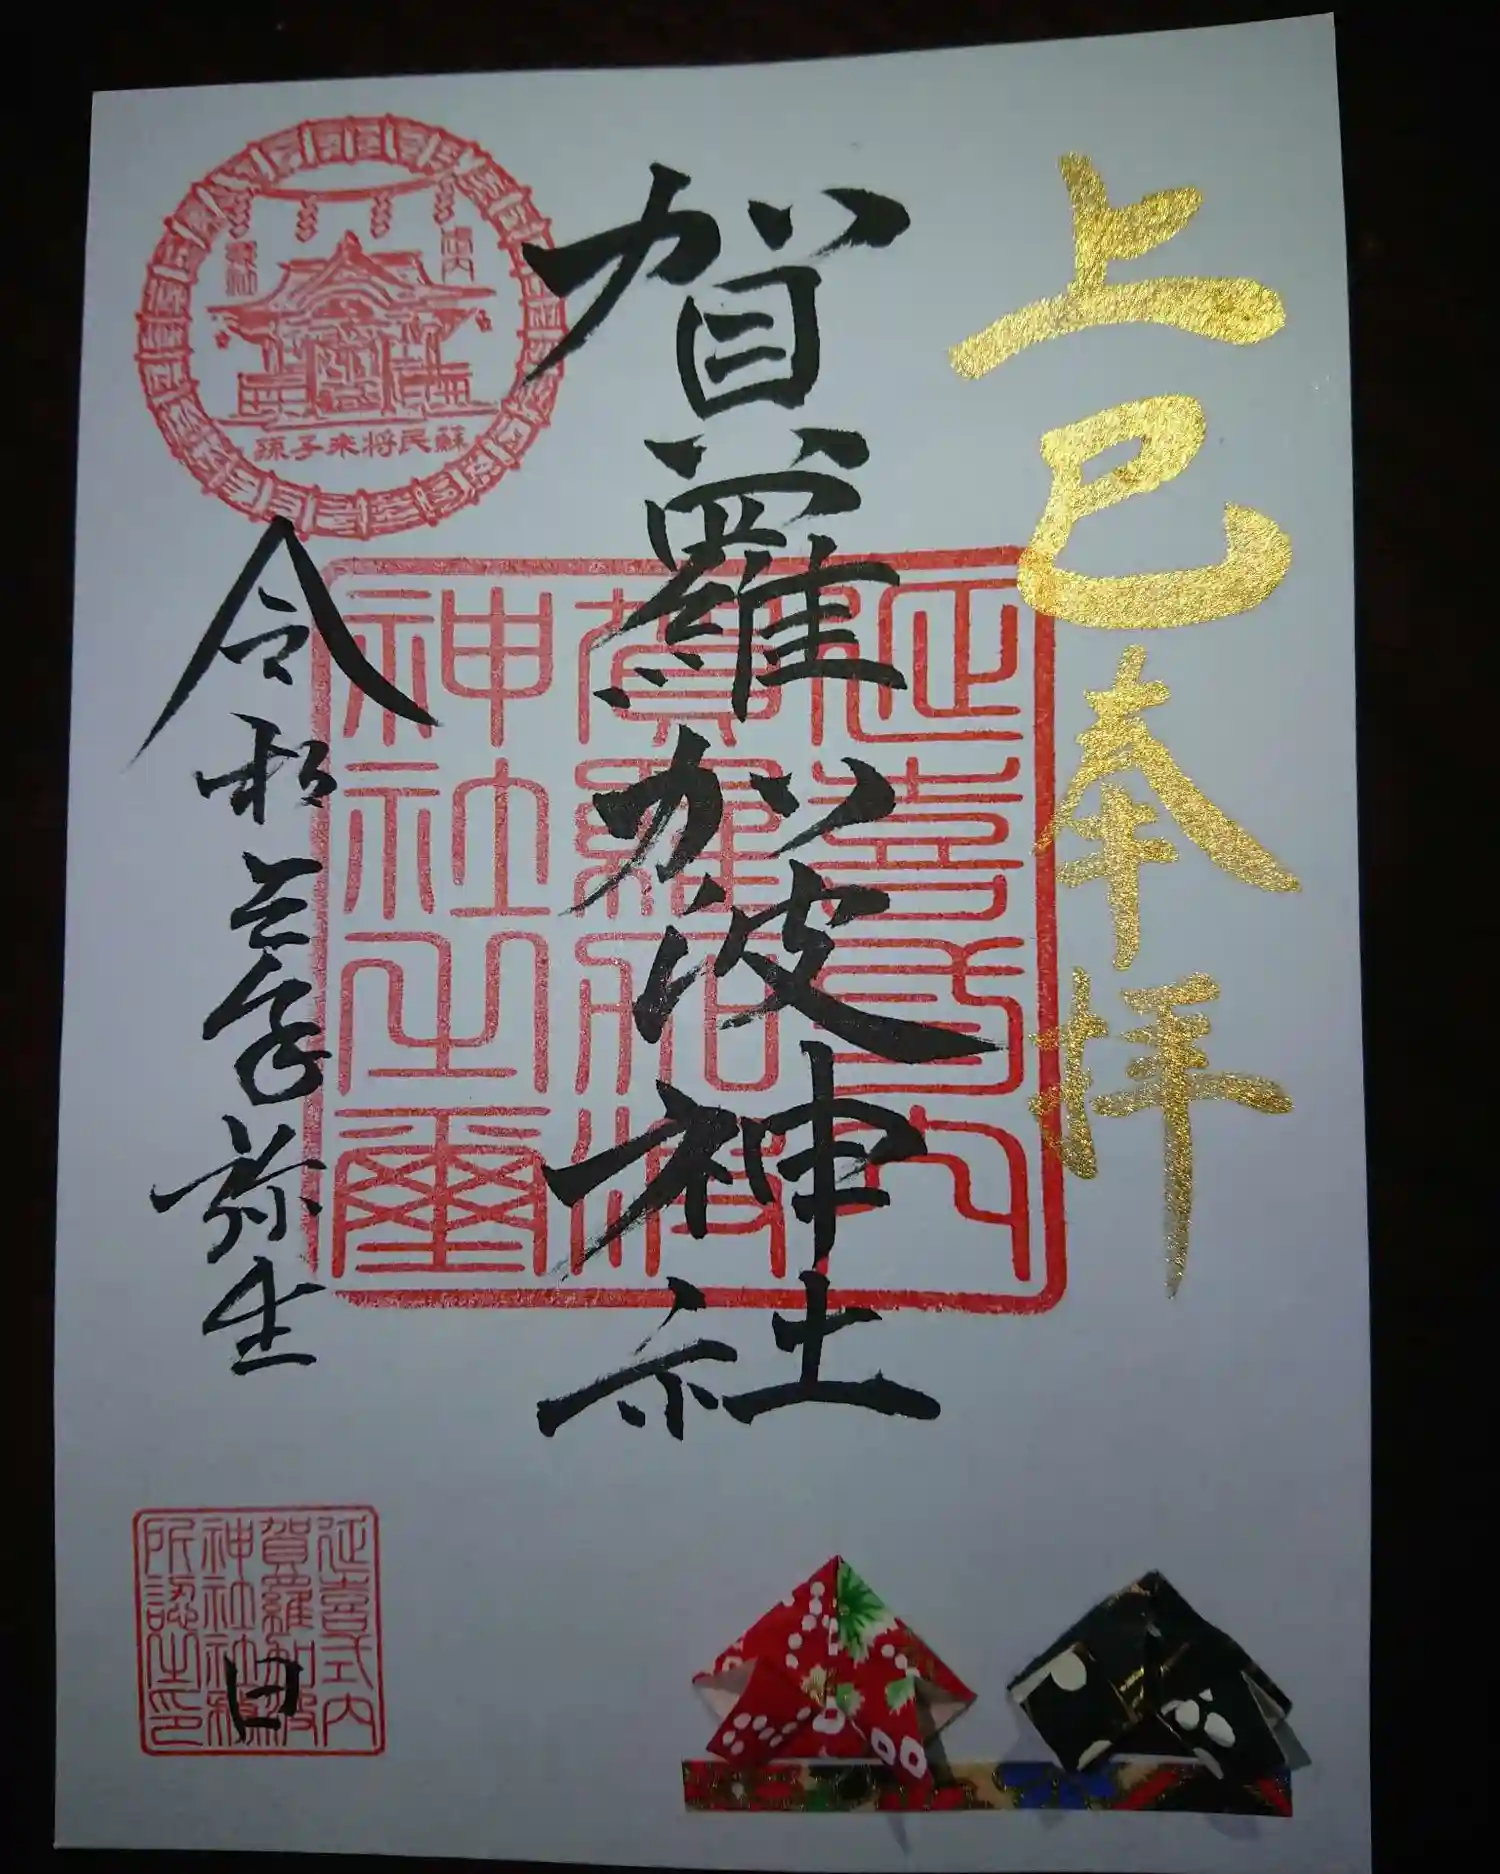 上巳奉拝
賀羅加波神社
延喜式内
賀羅加波
神社之璽
蘇民将来子孫
令和三年弥生
日
延喜式内
賀羅加波
神社社務
所認之印